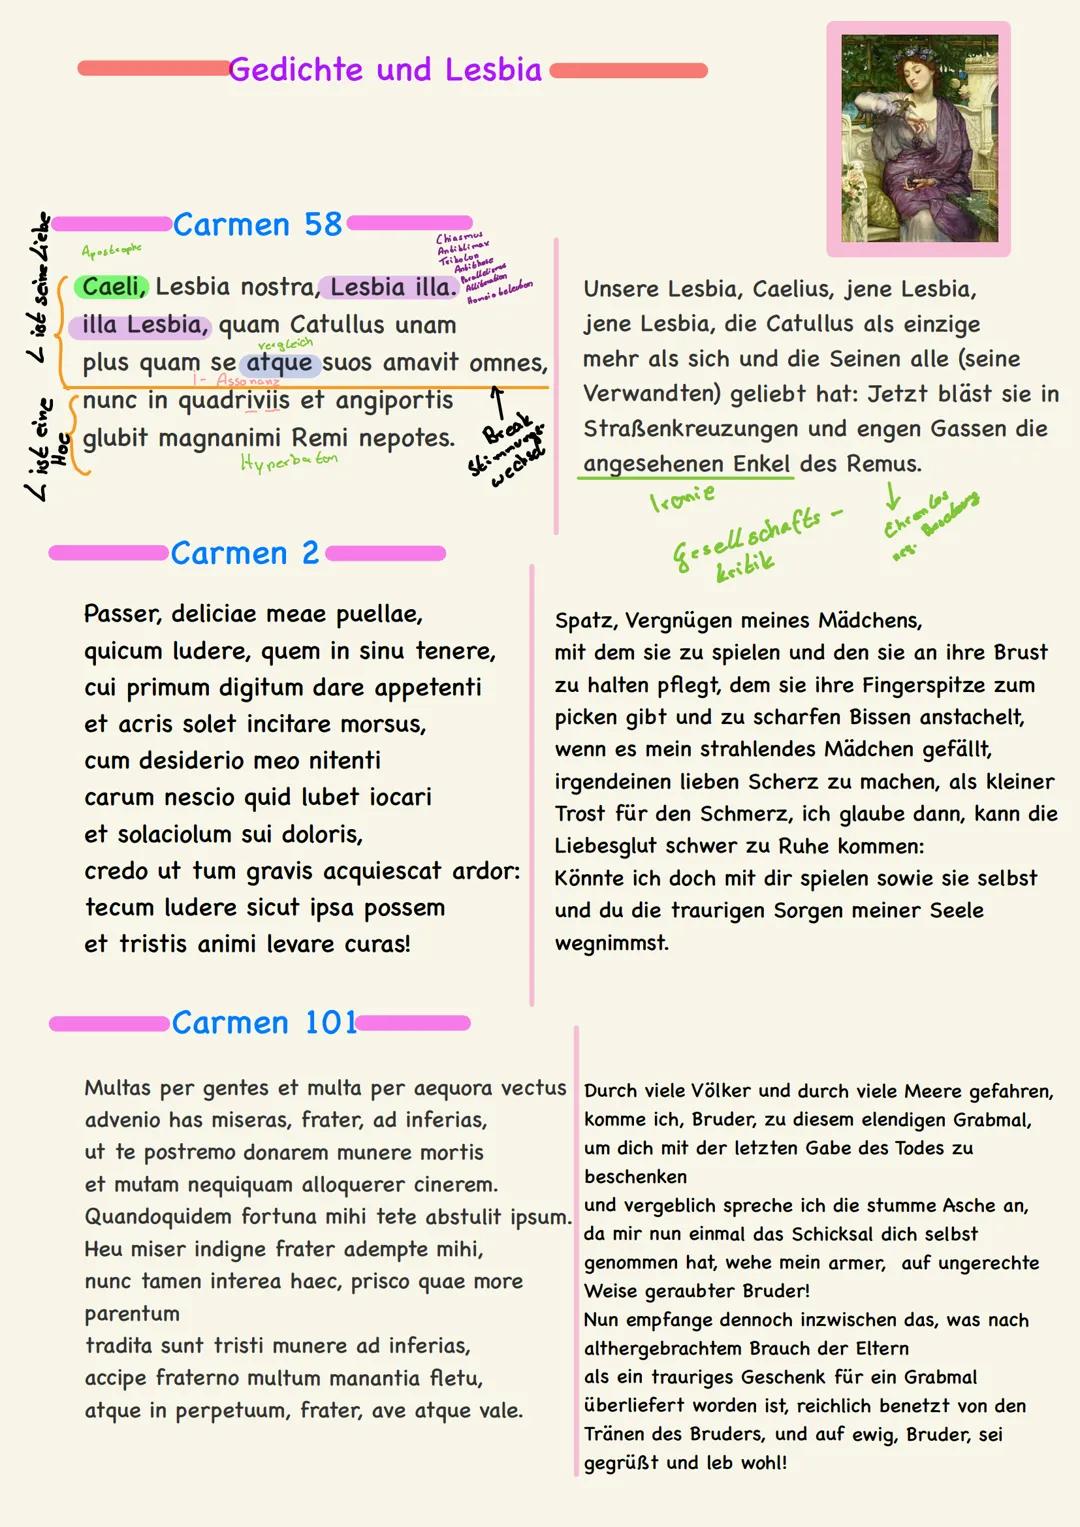 Gedichte und Lesbia
Carmen 58
Apostrophe
Chiasmus
Antiklimax
Trikolon
Antithese
Parallelismus
Alliteration
L ist seine Liebe
Caeli, Lesbia nostra, Lesbia illa.
illa Lesbia, quam Catullus unam
vergleich
plus quam se atque suos amavit omnes,
i- Assonanz
nunc in quadriviis et angiportis
glubit magnanimi Remi nepotes.
Hyperbaton
L ist eine
Break
Stimmungs-
wechsel
Unsere Lesbia, Caelius, jene Lesbia,
jene Lesbia, die Catullus als einzige
mehr als sich und die Seinen alle (seine
Verwandten) geliebt hat: Jetzt bläst sie in
Straßenkreuzungen und engen Gassen die
angesehenen Enkel des Remus.
Ironie
Gesellschafts-
kritik
Ehrenlos
neg.
Carmen 2
Passer, deliciae meae puellae,
quicum ludere, quem in sinu tenere,
cui primum digitum dare appetenti
et acris solet incitare morsus,
cum desiderio meo nitenti
carum nescio quid lubet iocari
et solaciolum sui doloris,
credo ut tum gravis acquiescat ardor:
tecum ludere sicut ipsa possem
et tristis animi levare curas!
Spatz, Vergnügen meines Mädchens,
mit dem sie zu spielen und den sie an ihre Brust
zu halten pflegt, dem sie ihre Fingerspitze zum
picken gibt und zu scharfen Bissen anstachelt,
wenn es mein strahlendes Mädchen gefällt,
irgendeinen lieben Scherz zu machen, als kleiner
Trost für den Schmerz, ich glaube dann, kann die
Liebesglut schwer zu Ruhe kommen:
Könnte ich doch mit dir spielen sowie sie selbst
und du die traurigen Sorgen meiner Seele
wegnimmst.
Carmen 101
Multas per gentes et multa per aequora vectus
advenio has miseras, frater, ad inferias,
ut te postremo donarem munere mortis
et mutam nequiquam alloquerer cinerem.
Quandoquidem fortuna mihi tete abstulit ipsum.
Heu miser indigne frater adempte mihi,
nunc tamen interea haec, prisco quae more
parentum
tradita sunt tristi munere ad inferias,
accipe fraterno multum manantia fletu,
atque in perpetuum, frater, ave atque vale.
Durch viele Völker und durch viele Meere gefahren,
komme ich, Bruder, zu diesem elendigen Grabmal,
um dich mit der letzten Gabe des Todes zu
beschenken
und vergeblich spreche ich die stumme Asche an,
da mir nun einmal das Schicksal dich selbst
genommen hat, wehe mein armer, auf ungerechte
Weise geraubter Bruder!
Nun empfange dennoch inzwischen das, was nach
althergebrachtem Brauch der Eltern
als ein trauriges Geschenk für ein Grabmal
überliefert worden ist, reichlich benetzt von den
Tränen des Bruders, und auf ewig, Bruder, sei
gegrüßt und leb wohl!